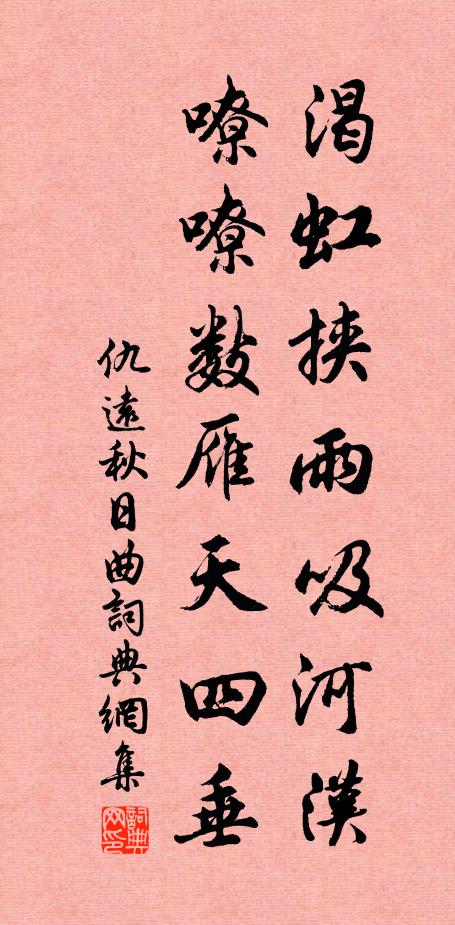 渴虹挾雨吸河漢
嘹嘹數雁天四垂
仇遠秋日曲詞典網集
詞典网印